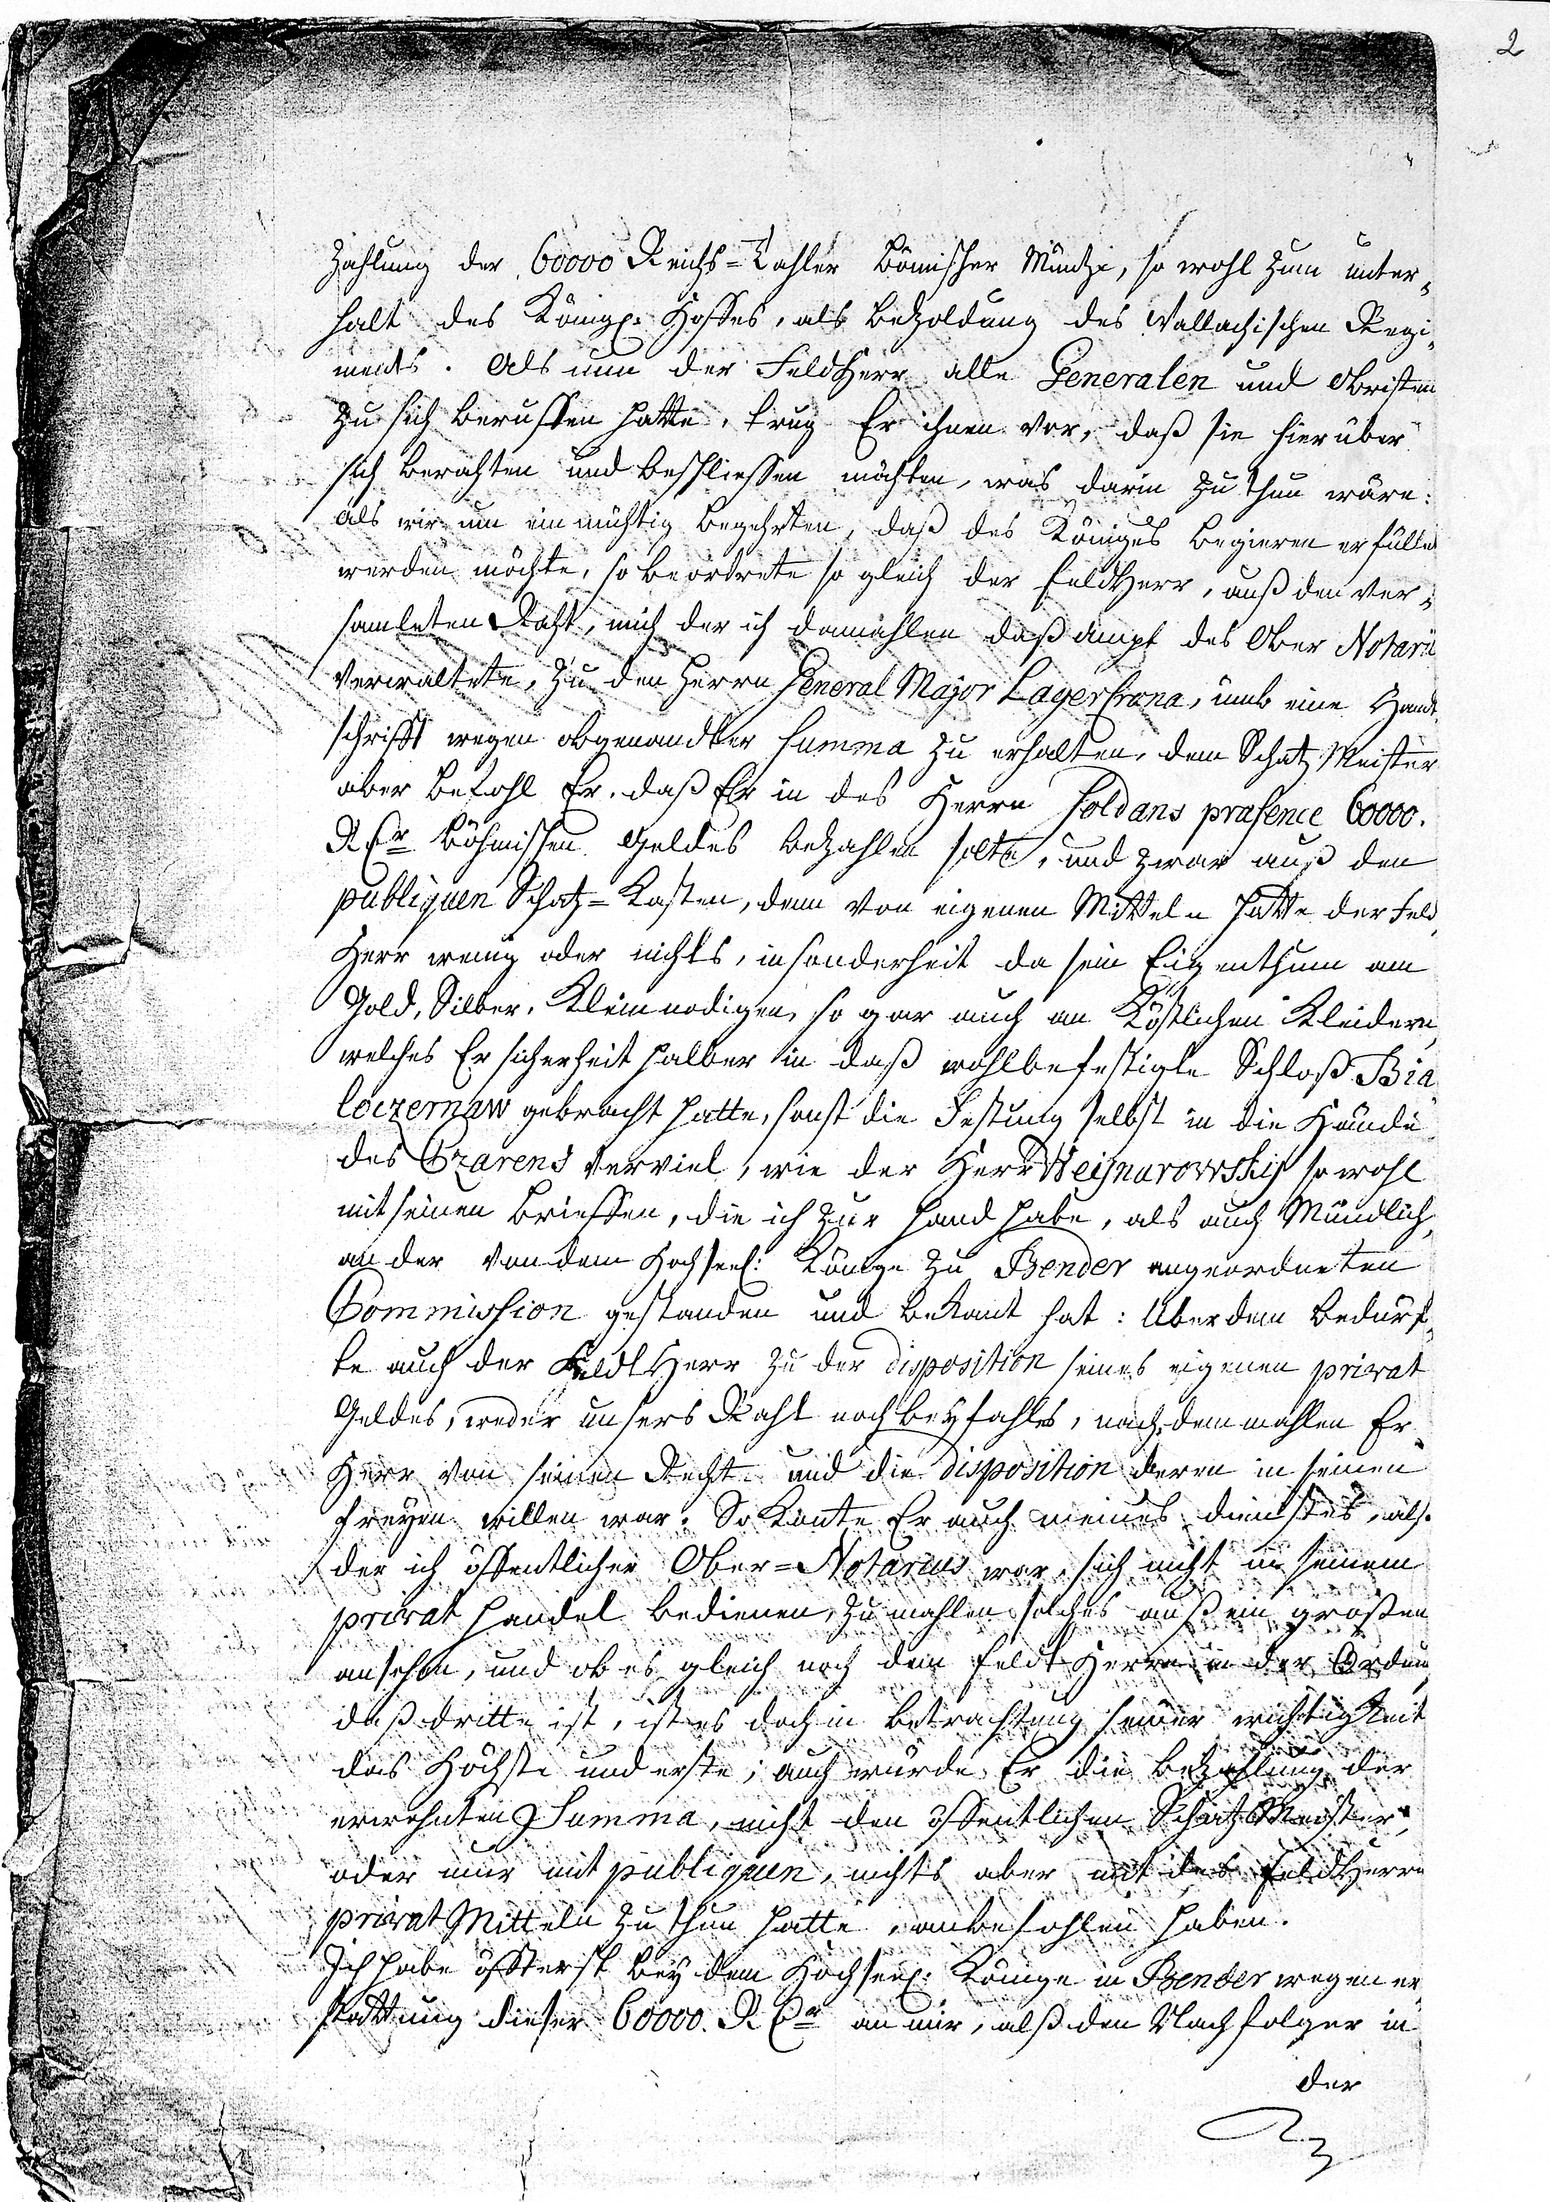 2
Zahlung der 60000 Reichs=Tahler Bömischer Müntze, so wohl zum unter„
halt des Königl: Hoffes, als Bezoldung des Wallachischen Regi„
ments. Als nun der FeldHerr alle Generalen und Obristen
zu sich beruffen hatte, trug Er ihnen vor, daß sie hierüber
sich berahten und beschliessen möchten, was darin zu thun wäre:
als wir nun einmühtig begehrten, daß des Königes begieren erfüllet
werden möchte, so beordrete so gleich der FeldHerr, auß den ver„
samleten Raht, mich der ich damahlen daß Ampt des Ober Notarii
verwaltete, zu den Herrn General Major Lagercrona, umb eine Handt„
schrifft wegen obgenandter Summa zu erhalten, dem Schatz Meister
aber befohl Er, daß Er in des Herrn Soldans præsence 60000.
RCr Böhmischen Geldes bezahlen solte, und zwar auß den
publiquen Schatz=Kasten, denn von eigenen Mitteln hatte der Feld„
Herr wenig oder nichts, insonderheit da sein Eigenthum am
Gold, Silber, Kleinnodigen, so gar auch an Köstlichen Kleidern,
welches Er sicherheit halber in daß wohlbefestigte Schloß Bia„
loczernaw gebracht hatte, sonst die Festung selbst in die Hände
des Czarens verviel, wie der Herr Weijnarowskij so wohl
mit seinen Brieffen, die ich zur hand habe, als auch Mündlich,
an der von dem Hochseel: Könige zu Bender angeordneten
Commission gestanden und bekant hat: Überdem bedürf„
te auch der FeldtHerr zu der disposition seines eigenen privat
Geldes, weder unsers Raht noch beyfahls, nachdemmahlen Er
Herr von seinen Recht und die disposition deren in seinen
freyen willen war. So Könte Er auch meines dienstes, als
der ich öffentlicher Ober=Notarius war, sich nicht in seinem
privat handel bedienen, zumahlen solches auß ein grossen
ansehen, und ob es gleich nach dem FeldtHerrn in der Ordnu„
daß dritte ist, ist es doch in betrachtung seiner wichtigkeit
das Höchste und erste; auch würde Er die bezahlung der
erwehnten Summa, nicht den öffentlichen Schatz Meister,
oder nur mit publiquen, nichts aber mit des FeldHerrn
privat Mitteln zu thun hatte, anbefohlen haben.
Ich habe öffterst bey dem Hochseel: Könige in Bender wegen er„
stattung dieser 60000. RCr an mir, alß den Nachfolger in
der